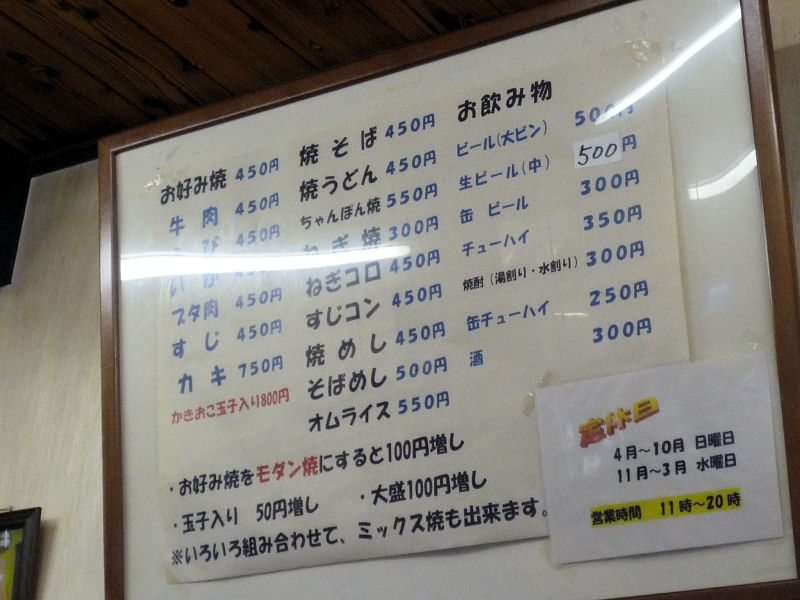 お好み焼 450円
牛肉 450円
えび 450円
いか
ブタ肉 450円
すじ 450円
カキ 750円
かきおこ玉子入り800円
焼そば 450円
焼うどん 450円
ちゃんぽん焼 550円
ねぎ焼 300円
ねぎコロ 450円
すじコン 450円
焼めし 450円
そばめし 500円
オムライス 550円
お飲み物
ビール(大ビン) 500円
生ビール(中) 500円
缶ビール 300円
チューハイ 350円
焼酎(湯割り・水割り) 300円
缶チューハイ 250円
酒 300円
・お好み焼をモダン焼にすると100円増し
・玉子入り 50円増し ・大盛100円増し
※いろいろ組み合わせて、ミックス焼も出来ます。
定休日
4月〜10月 日曜日
11月〜3月 水曜日
営業時間 11時〜20時